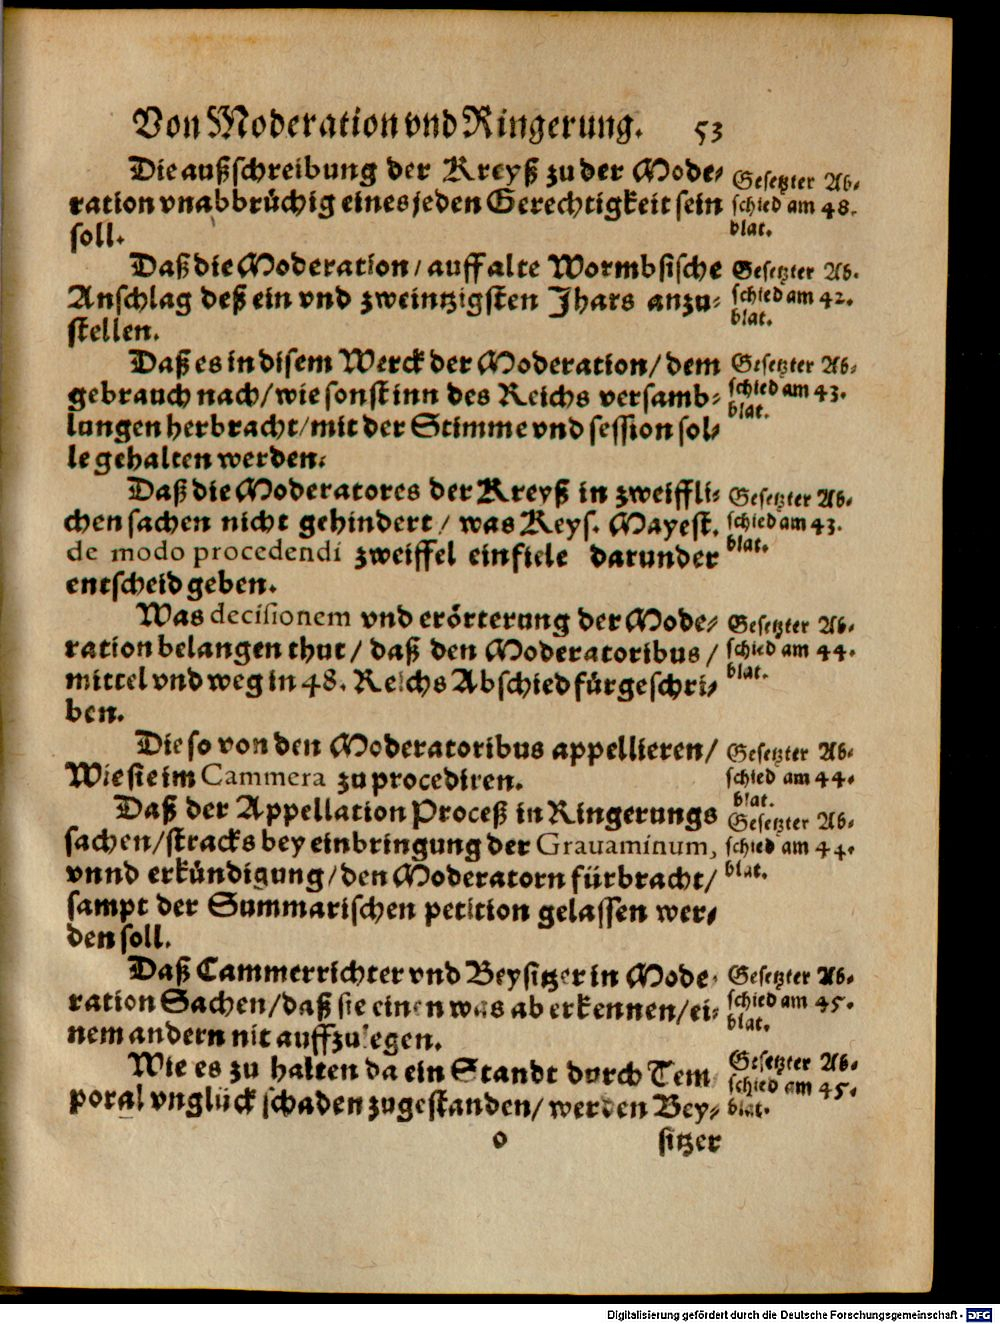 Von Moderation vnd Ringerung. 53
Die außschreibung der Kreyß zu der Mode⸗
ration vnabbrüchig eines jeden Gerechtigkeit sein
soll.
Gesetzter Ab⸗
schied am 48.
blat.
Daß die Moderation / auff alte Wormbsische
Anschlag deß ein vnd zweintzigsten Jhars anzu⸗
stellen.
Gesetzter Ab⸗
schied am 42.
blat.
Daß es in disem Werck der Moderation / dem
gebrauch nach / wie sonst inn des Reichs versamb⸗
lungen herbracht / mit der Stimme vnd session sol⸗
le gehalten werden.
Gesetzter Ab⸗
schied am 43.
blat.
Daß die Moderatores der Kreyß in zweiffli⸗
chen sachen nicht gehindert / was Keys. Mayest.
de modo procedendi zweiffel einfiele darunder
entscheid geben.
Gesetzter Ab⸗
schied am 43.
blat.
Was decisionem vnd erörterung der Mode⸗
ration belangen thut / daß den Moderatoribus /
mittel vnd weg in 48. Reichs Abschied fürgeschri⸗
ben.
Gesetzter Ab⸗
schied am 44.
blat.
Die so von den Moderatoribus appellieren /
Wie sie im Cammera zu procediren.
Gesetzter Ab⸗
schied am 44.
blat.
Daß der Appellation Proceß in Ringerungs
sachen / stracks bey einbringung der Grauaminum,
vnnd erkündigung / den Moderatorn fürbracht /
sampt der Summarischen petition gelassen wer⸗
den soll.
Gesetzter Ab⸗
schied am 44.
blat.
Daß Cammerrichter vnd Beysitzer in Mode⸗
ration Sachen / daß sie einen was ab erkennen / ei⸗
nem andern nit auffzulegen.
Gesetzter Ab⸗
schied am 45.
blat.
Wie es zu halten da ein Standt durch Tem
poral vnglück schaden zugestanden / werden Bey⸗
Gesetzter Ab⸗
schied am 45.
blat.
o sitzer
Digitalisierung gefördert durch die Deutsche Forschungsgemeinschaft - DFG